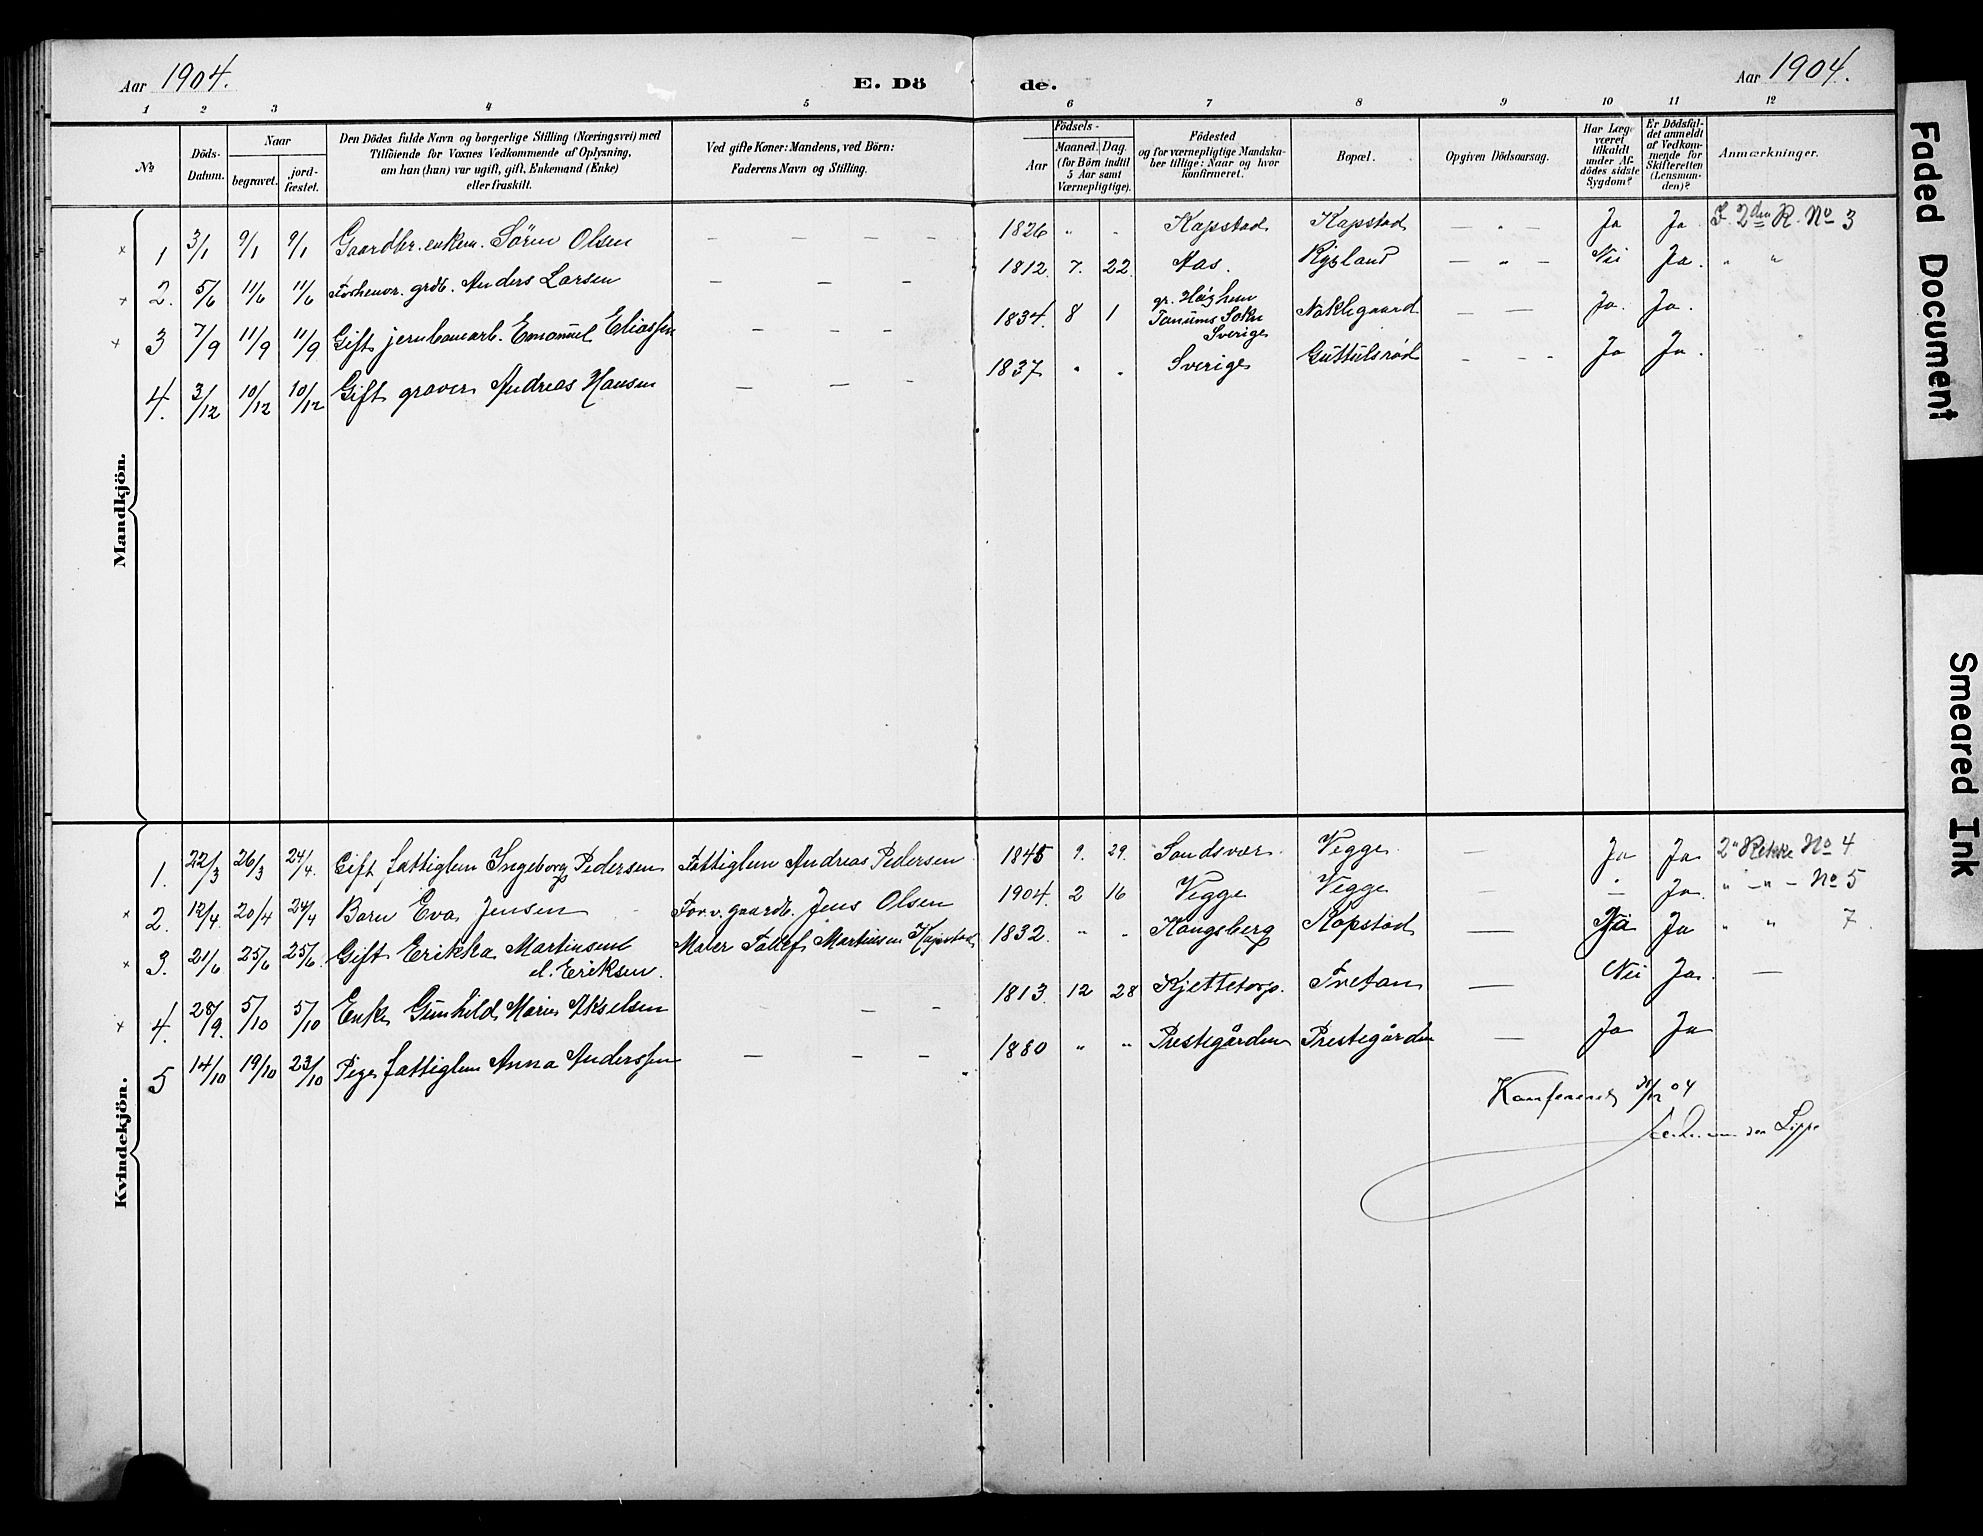 Aar 1904.
E. Dö
de.
Aar 1904.
1 2 3 4 5 6 7 8 9 10 11 12
No
Döds-
Datum.
Naar
begravet.
jord-
fæstet.
Den Dödes fulde Navn og borgerlige Stilling (Næringsvei) med
Tilföiende for Voxnes Vedkommende af Oplysning,
om han (hun) var ugift, gift, Enkemand (Enke)
eller fraskilt.
Ved gifte Koner: Mandens, ved Börn:
Faderens Navn og Stilling.
Födsels-
Aar
Maaned. Dag.
(for Börn indtil
5 Aar samt
Værnepligtige).
Födested
og for værnepligtige Mandska-
ber tillige: Naar og hvor
konfirmeret.
Bopæl.
Opgiven Dödsaarsag.
Har Læge
været
tilkaldt
under Af-
dödes sidste
Sygdom?
Er Dödsfal-
det anmeldt
af Vedkom-
mende for
Skifteretten
(Lensman-
den)?
Anmærkninger.
Mandkjön.
1 3/1 9/1 9/1 Gaardbr. enkem. Sören Olsen — — — — 1826 " " Kapstad Kapstad — " — Ja Ja I 2den R. No 3
2. 5/6 11/6 11/6 Forhenv. grdb. Anders Larsen — — — 1812. 7. 22. Aas. Rypland — " — Nei Ja. " "
3 7/9 11/9 11/9 Gift jernbanearb. Emanuel Eliassen — — — 1834. 8 1 gr. Høghem
Tanums Sokn
Sverige
Naklegaard — — Ja. Ja.
4. 3/12 10/12 10/12 Gift graver Andreas Hansen — — — 1837 " " Sverige Guttulsrød - - - Ja Ja.
Kvindekjön.
1. 22/3 26/3 24/4. Gift fattiglem Ingeborg Pedersen Fattiglem Andreas Pedersen 1845 9. 29. Sandsvær Vegge — Ja Ja 2n Rekke No 4
2. 12/4 20/4 24/4 Barn Eva Jensen Forv. gaardb. Jens Olsen 1904. 2 16 Vegge Vegge — — Ja. " — " — No 5
3. 21/6 25/6 25/6. Gift Erikka Martinsen
el. Eriksen.
Maler Tollef Martinsen Kapstad 1832. " " Kongsberg Kapstad — Ja Ja " " 7.
4. 28/9. 5/10 5/10 Enke Gunhild Marie Akselsen — — - 1813. 12 28 Kjettetorp. Tvetan — Nei Ja. —
5 14/10 19/10 23/10 Pige fattiglem Anna Anderssen — — — 1880 " " Prestegården Prestegården — Ja Ja
Konfereret 31/12 04
van der Lippe
Faded Document
Smeared Ink